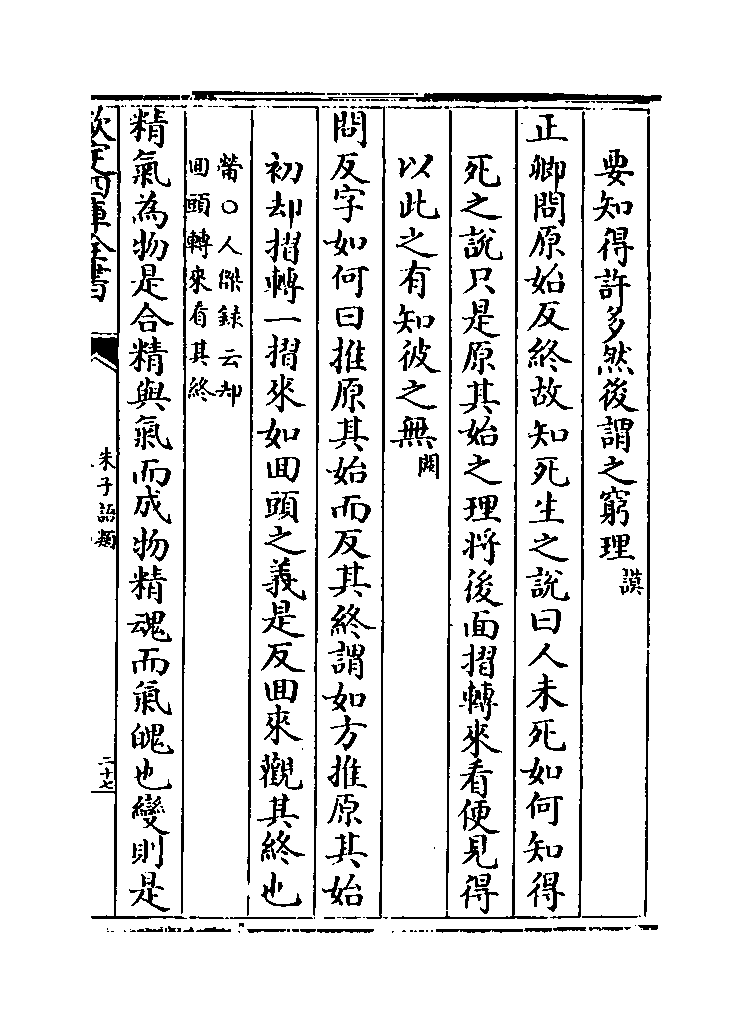 要知得許多然後謂之窮理謨
正卿問原始反終故知死生之說曰人未死如何知得
死之說只是原其始之理將後面摺轉來看便見得
以此之有知彼之無閎
問反字如何曰推原其始而反其終謂如方推原其始
初却摺轉一摺來如回頭之義是反回來觀其終也
㽦○人傑錄云却
回頭轉來看其終
精氣為物是合精與氣而成物精魂而氣魄也變則是
欽定四庫全書
朱子語類
二十七